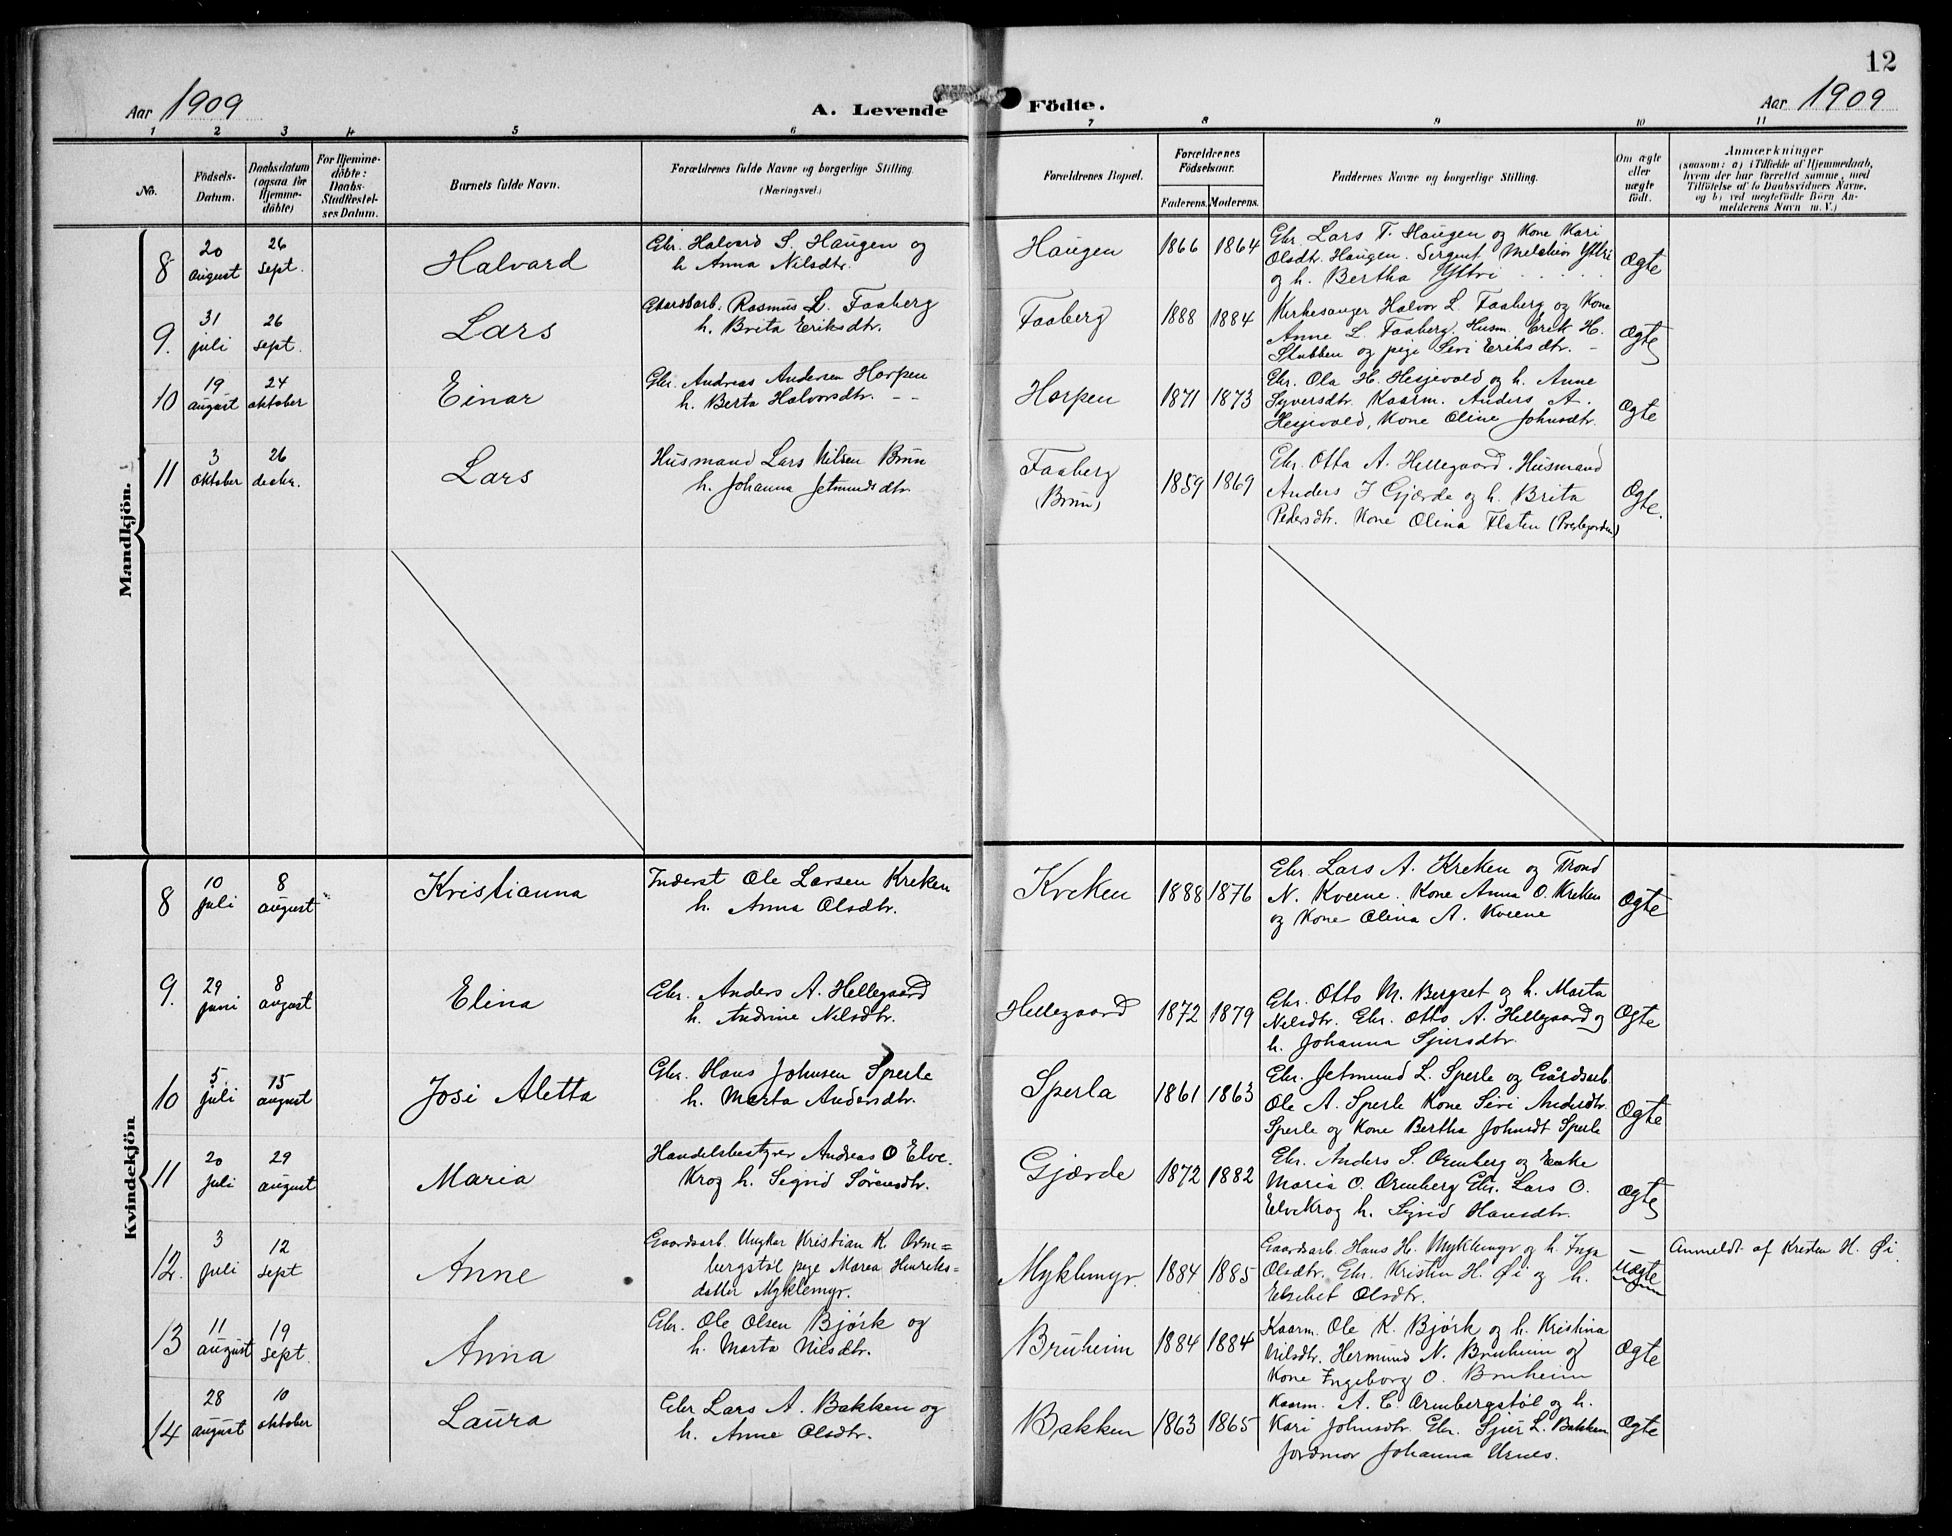 12
Aar 1909
A. Levende Födte.
Aar 1909
1 2 3 4 5 6 7 8 9 10 11
No.
Födsels-Datum.
Daabsdatum (ogsaa for Hjemme-döbte)
For Hjemme-döbte: Daabs-Stadfæstel-ses Datum.
Barnets fulde Navn.
Forældrenes fulde Navne og borgerlige Stilling.
(Næringsvei.)
Forældrenes Bopæl.
Forældrenes Födselsaar.
Faderens. Moderens.
Faddernes Navne og borgerlige Stilling.
Om ægte eller uægte födt.
Anmærkninger
(saasom: a) i Tilfælde af Hjemmedaab, hvem der har forrettet samme, med Tilföielse af to Daabsvidners Navne. og b) ved uægtefödte Börn An-melderens Navn m. V.)
Mandkjön.
8 20 august 26 sept. Halvard
Gbr. Halvard S. Haugen og
h. Anna Nilsdtr.
Haugen 1866 1864
Gbr. Lars T. Haugen og Kone Kari
Olsdtr. Haugen. Sergent Melchior Yttri
og h. Bertha Yttri
Ægte
9. 31 juli 26 sept. Lars
Gaardsarb. Rasmus L. Faaberg
h. Brita Eriksdtr.
Faaberg 1888 1884
Kirkesanger Halvor L. Faaberg og Kone
Anne L. Faaberg. Husm. Erik H.
Stubben og pige Siri Eriksdtr. –
Ægte
10 19 august 24 oktober Einar
Gbr. Andreas Andersen Horpen
h. Berta Halvorsdtr. – –
Horpen 1871 1873
Gbr. Ola H. Hesjevold og h. Anne
Syversdtr. Kaarm. Anders A.
Hesjevold, Kone Oline Johnsdtr.
Ægte
11 3 oktober 26 decbr. Lars
Husmand Lars Nilsen Brun
h. Johanna Jetmundsdtr.
Faaberg
(Brun)
1859 1869
Gbr. Otta A. Hellegaard. Husmand
Anders J Gjærde og h. Brita
Pedersdtr. Kone Olina Flaten (Prestegorden)
Ægte.
Kvindekjön
8 10 juli 8 august Kristianna
Inderst Ole Larsen Kreken
h. Anna Olsdtr.
Kreken 1888 1876
Gbr. Lars A. Kreken og Trond
N. Kveene. Kone Anna O. Kreken
og Kone Olina A. Kveene
Ægte
9. 29 juni 8 august Elina
Gbr. Anders A. Hellegaard
h. Andrine Nilsdtr.
Hellegaard 1872 1879
Gbr. Otto M. Bergset og h. Marta
Nilsdtr. Gbr. Otto A. Hellegaard og
h. Johanna Sjursdtr.
Ægte
10 5 juli 15 august Josi Aletta
Gbr. Hans Johnsen Sperle
h. Marta Andersdtr.
Sperla 1861 1863
Gbr. Jetmund L. Sperle og Gårdsarb.
Ole A. Sperle Kone Siri Andersdtr.
Sperle og Kone Bertha Johnsdt Sperle
Ægte
11 20 juli 29 august Maria
Handelsbestyrer Andreas O Elve-
Krog h. Sigrid Sørensdtr.
Gjærde 1872 1882
Gbr. Anders S. Ormberg og Enke
Maria O. Ormberg Gbr. Lars O.
ElveKrog h. Sigrid Hansdtr.
Ægte
12. 3 juli 12 Sept Anne
Gaardsarb. Ungkar Kristian K. Orm=
bergstøl pige Maria Henriks=
datter Myklemyr.
Myklemyr 1884 1885
Gaardsarb. Hans H. Myklemyr og h. Inga
Olsdtr. Gbr. Kristen H. Øi og h.
Elsebet Olsdtr.
Uægte
Anmeldt af Kristen H. Øi
13 11 august 19 Sept. Anna
Gbr. Ole Olsen Bjørk og
h. Marta Nilsdtr.
Bruheim 1884 1884
Kaarm. Ole K. Bjørk og h. Kristina
Nilsdtr. Hermund N. Bruheim og
Kone Ingeborg O. Bruheim
Ægte
14 28 august 10 oktober Laura
Gbr Lars A. Bakken og
h. Anne Olsdtr.
Bakken 1863 1865
Kaarm. A. E. Ormbergstøl og h.
Kari Johnsdtr. Gbr. Sjur L. Bakken
Jordmor Johanna Urnes.
Ægte